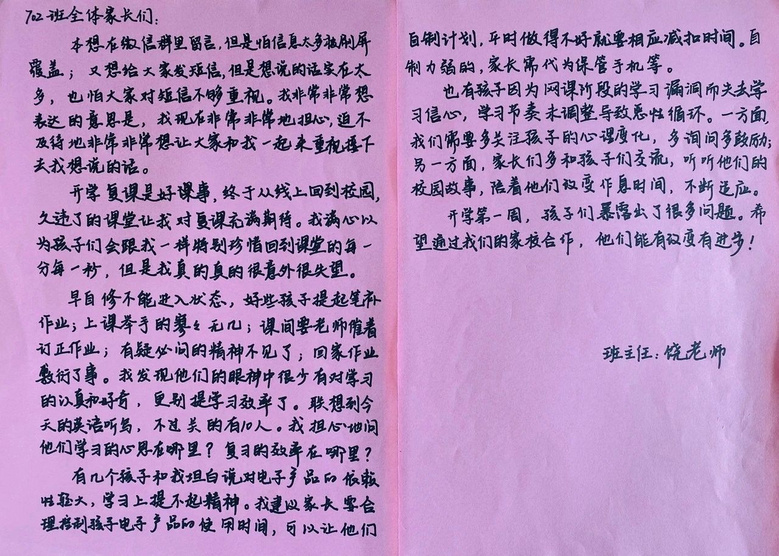 702班全体家长们：
本想在微信群里留言，但是怕信息太多被刷屏
覆盖；又想给大家发短信，但是想说的话实在太
多，也怕大家对短信不够重视。我非常非常想
表达的意思是，我现在非常非常地担心，迫不
及待地非常非常想让大家和我一起来重视接下
去我想说的话。
开学复课是好课事，终于从线上回到校园，
久违了的课堂让我对复课充满期待。我满心以
为孩子们会跟我一样特别珍惜回到课堂的每一
分每一秒，但是我真的真的很意外很失望。
早自修不能进入状态，好些孩子提起笔补
作业；上课举手的寥々无几；课间要老师催着
订正作业；有疑必问的精神不见了；回家作业
敷衍了事。我发现他们的眼神中很少有对学习
的认真和好奇，更别提学习效率了。联想到今
天的英语听写，不过关的有10人。我担心地问
他们学习的心思在哪里？复习的效率在哪里？
有几个孩子和我坦白说对电子产品的依赖
性较大，学习上提不起精神。我建议家长要合
理控制孩子电子产品的使用时间，可以让他们
自制计划，平时做得不好就要相应减扣时间。自
制力弱的，家长需代为保管手机等。
也有孩子因为网课阶段的学习漏洞而失去学
习信心，学习节奏未调整导致恶性循环。一方面，
我们需要多关注孩子的心理变化，多询问多鼓励；
另一方面，家长们多和孩子们交流，听听他们的
校园故事，陪着他们改变作息时间，不断适应。
开学第一周，孩子们暴露出了很多问题。希
望通过我们的家校合作，他们能有改变有进步！
班主任：饶老师